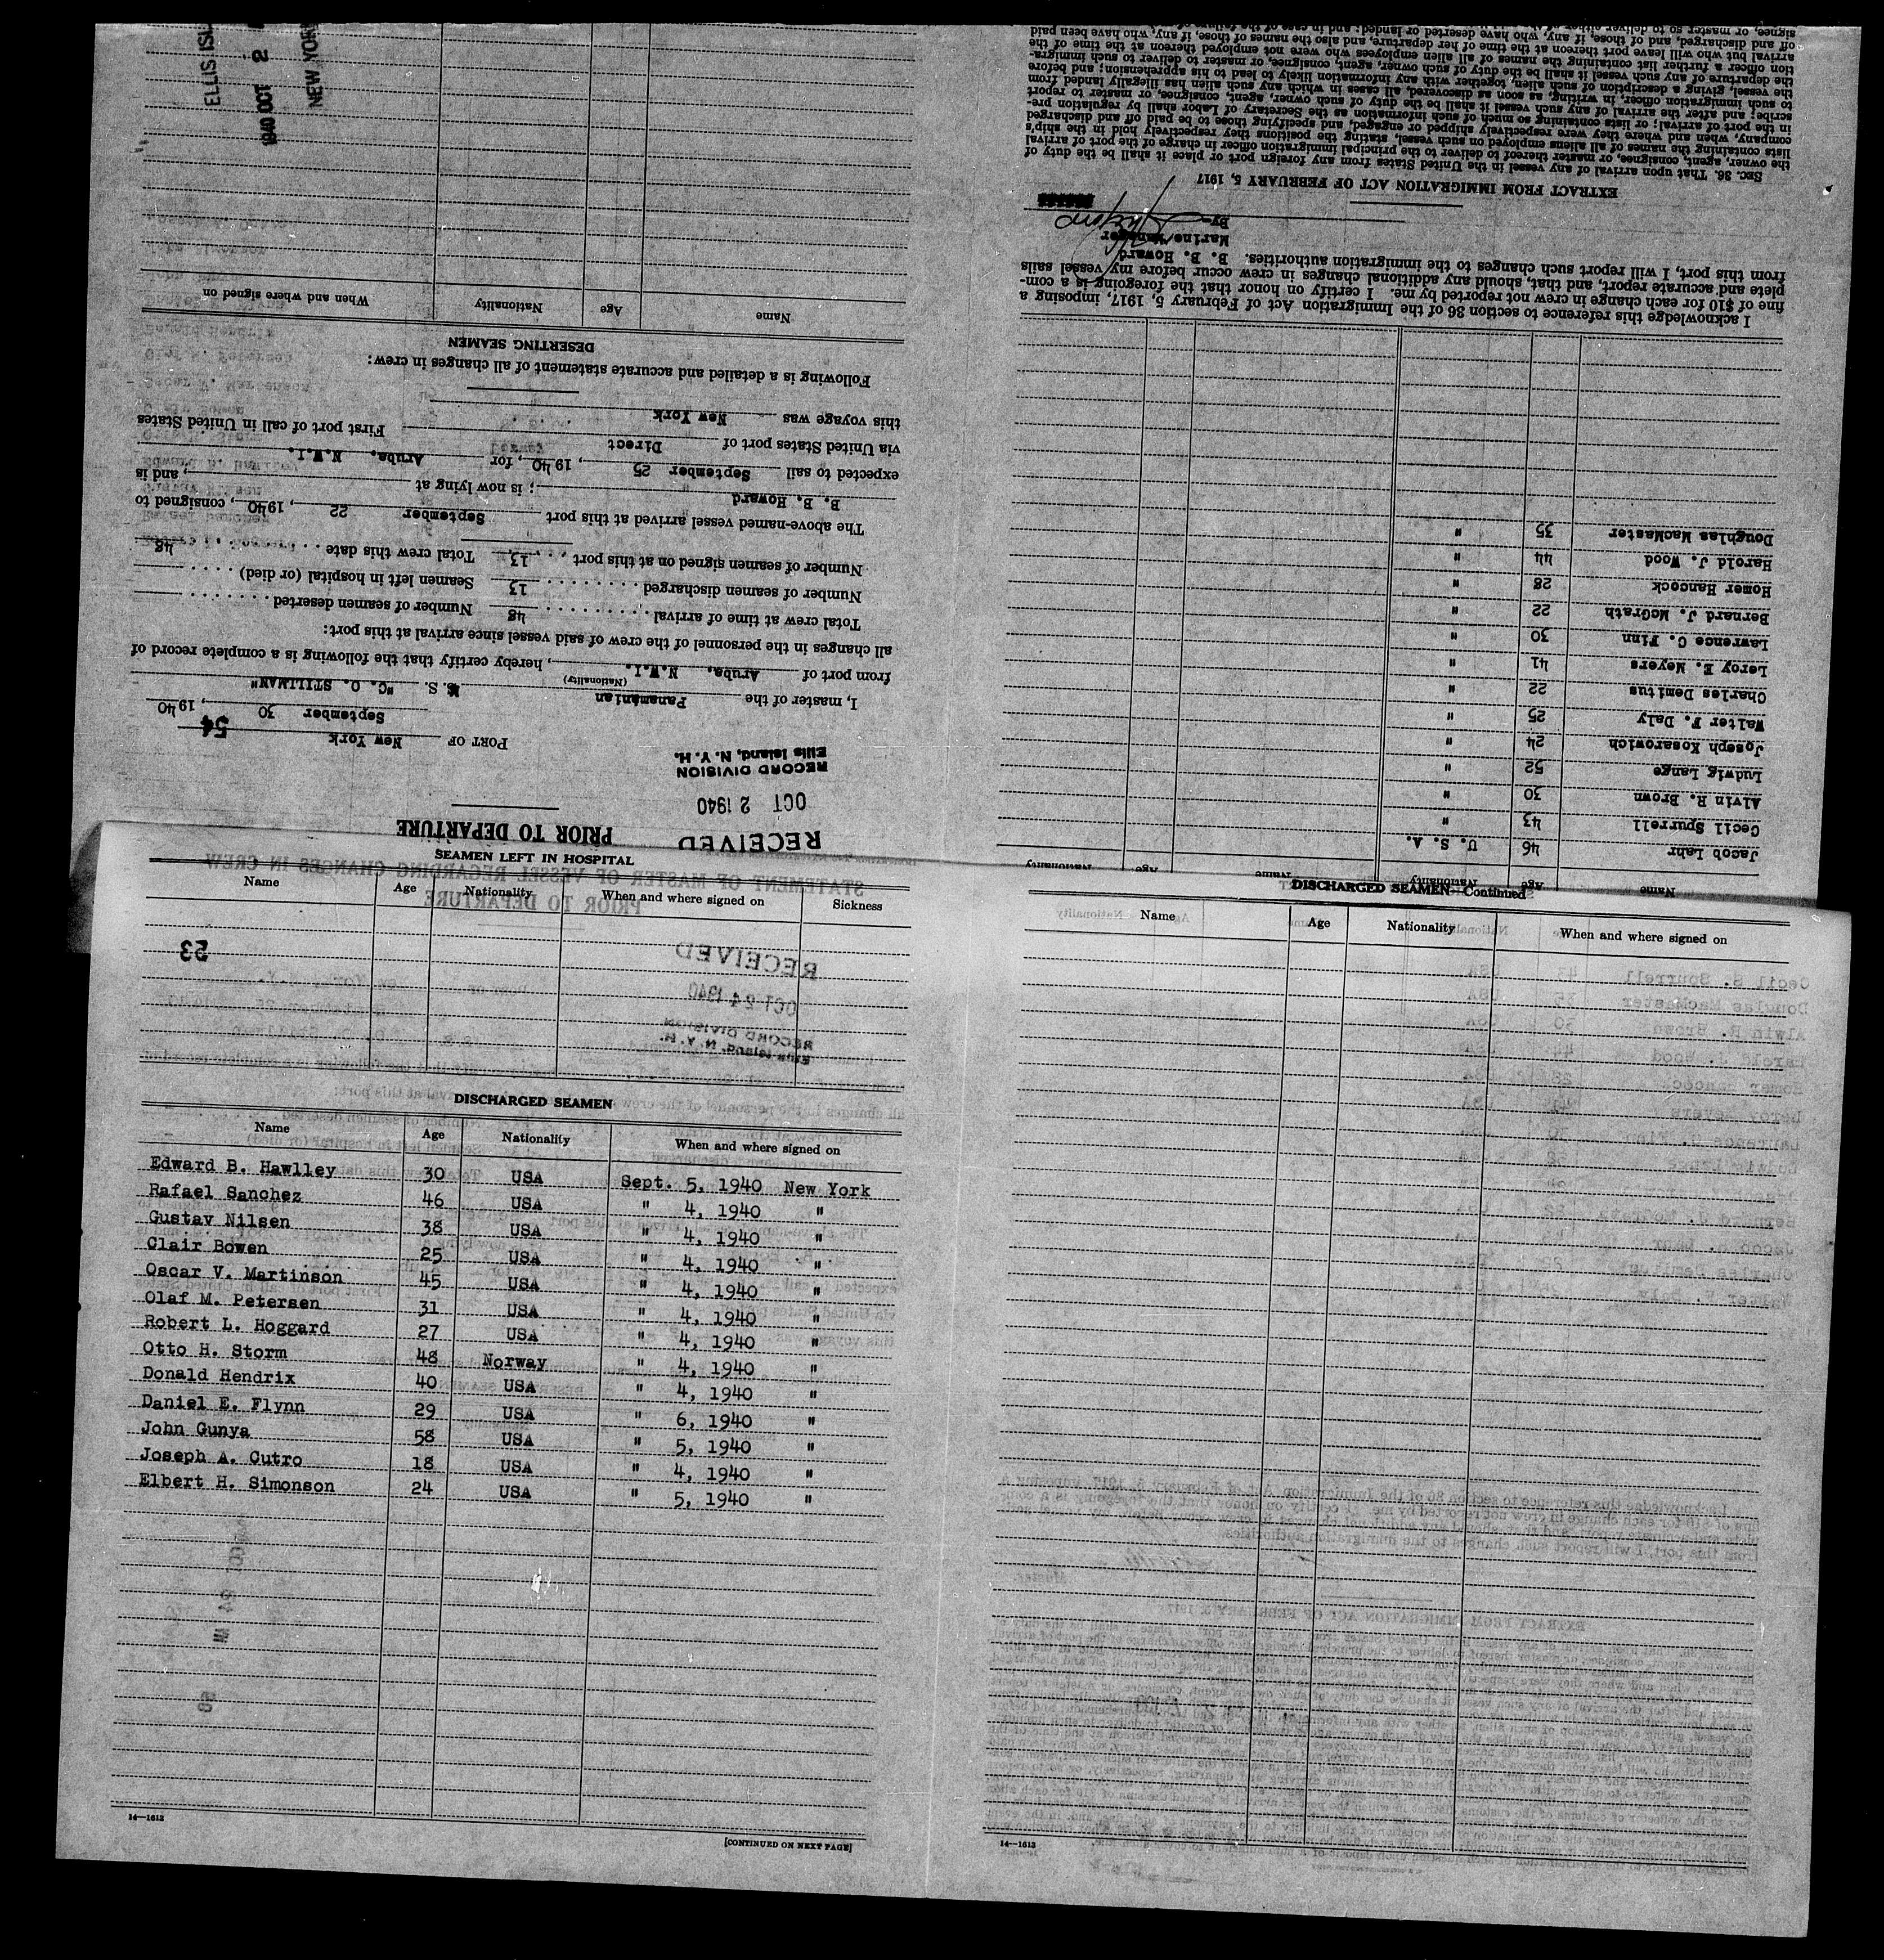 PRIOR TO DEPARTURE
RECEIVED
OCT 2 1940
RECORD DIVISION
Ellis Island, N. Y. H.
54
PORT OF New York
September 30, 1940
I, master of the Panamanian M. S. "C. O. STILLMAN"
(Nationality)
from port of Aruba, N.W.I., hereby certify that the following is a complete record of
all changes in the personnel of the crew of said vessel since arrival at this port:
Total crew at time of arrival 48 Number of seamen deserted
Number of seamen discharged 13 Seamen left in hospital (or died)
Number of seamen signed on at this port 13 Total crew this date 48
The above-named vessel arrived at this port September 22, 1940, consigned to
B. B. Howard; is now lying at, and is
expected to sail September 25, 1940, for Aruba, N.W.I.
via United States port of Direct First port of call in United States
this voyage was New York
Following is a detailed and accurate statement of all changes in crew:
DESERTING SEAMEN
Name Age Nationality When and where signed on
ELLIS ISL
1940 OCT 2
NEW YOR
Name Age Nationality Name Age Nationality
Jacob Lahr 46 U. S. A.
Cecil Spurrell 43 "
Alvin R. Brown 30 "
Ludwig Lange 52 "
Joseph Kosarowich 24 "
Walter F. Daly 25 "
Charles Demitus 22 "
Leroy E. Meyers 41 "
Lawrence C. Finn 30 "
Bernard J. McGrath 22 "
Homer Hancock 28 "
Harold J. Wood 44 "
Doughlas MacMaster 35 "
I acknowledge this reference to section 36 of the Immigration Act of February 5, 1917, imposing a
fine of $10 for each change in crew not reported by me. I certify on honor that the foregoing is a com-
plete and accurate report, and that, should any additional changes in crew occur before my vessel sails
from this port, I will report such changes to the immigration authorities. B. B. Howard
Marine Manager
By
EXTRACT FROM IMMIGRATION ACT OF FEBRUARY 5, 1917
SEC. 36. That upon arrival of any vessel in the United States from any foreign port or place it shall be the duty of
the owner, agent, consignee, or master thereof to deliver to the principal immigration officer in charge of the port of arrival
lists containing the names of all aliens employed on such vessel, stating the positions they respectively hold in the ship's
company, when and where they were respectively shipped or engaged, and specifying those to be paid off and discharged
in the port of arrival; or lists containing so much of such information as the Secretary of Labor shall by regulation pre-
scribe; and after the arrival of any such vessel it shall be the duty of such owner, agent, consignee, or master to report
to such immigration officer, in writing, as soon as discovered, all cases in which any such alien has illegally landed from
the vessel, giving a description of such alien, together with any information likely to lead to his apprehension; and before
the departure of any such vessel it shall be the duty of such owner, agent, consignee, or master to deliver to such immigra-
tion officer a further list containing the names of all alien employees who were not employed thereon at the time of the
arrival but who will leave port thereon at the time of her departure, and also the names of those, if any, who have been paid
off and discharged, and of those, if any, who have deserted or landed; and in case of the failure of
signee, or master so to deliver
SEAMEN LEFT IN HOSPITAL
Name Age Nationality When and where signed on Sickness
23
DISCHARGED SEAMEN
Name Age Nationality When and where signed on
Edward B. Hawlley 30 USA Sept. 5, 1940 New York
Rafael Sanchez 46 USA " 4, 1940 "
Gustav Nilsen 38 USA " 4, 1940 "
Clair Bowen 25 USA " 4, 1940 "
Oscar V. Martinson 45 USA " 4, 1940 "
Olaf M. Petersen 31 USA " 4, 1940 "
Robert L. Hoggard 27 USA " 4, 1940 "
Otto H. Storm 48 Norway " 4, 1940 "
Donald Hendrix 40 USA " 4, 1940 "
Daniel E. Flynn 29 USA " 6, 1940 "
John Gunya 58 USA " 5, 1940 "
Joseph A. Cutro 18 USA " 4, 1940 "
Elbert H. Simonson 24 USA " 5, 1940 "
14—1613
[CONTINUED ON NEXT PAGE]
DISCHARGED SEAMEN—Continued
Name Age Nationality When and where signed on
14—1613